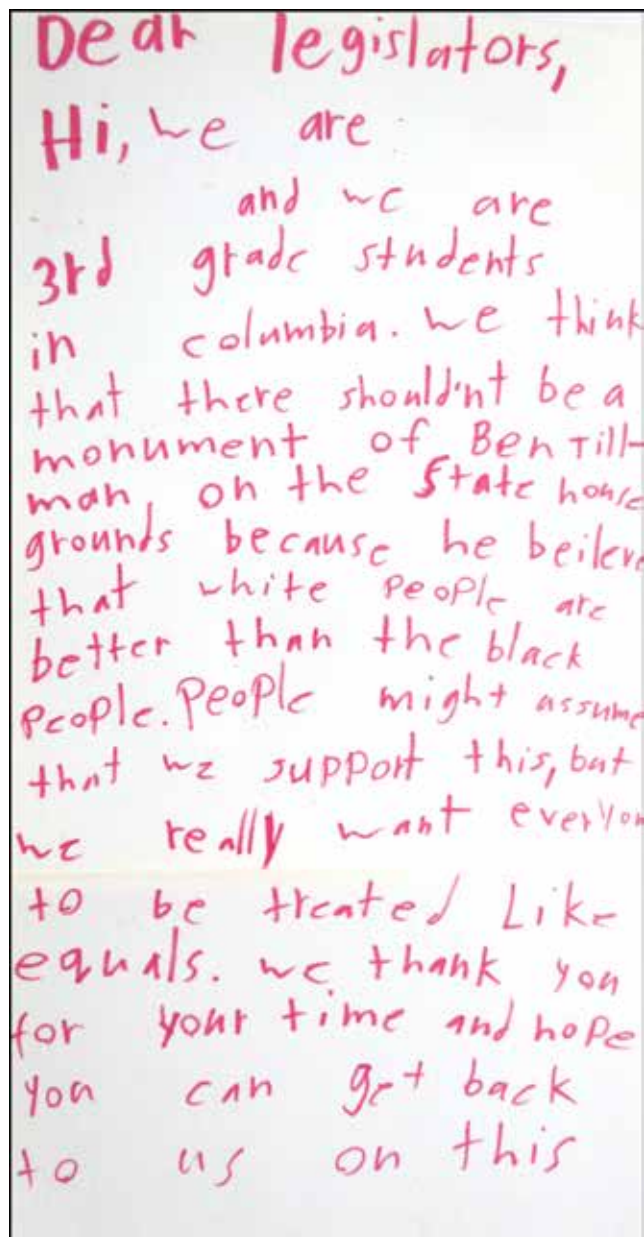 Dear legislators,
Hi, we are
and we are
3rd grade students
in columbia. we think
that there should'nt be a
monument of Ben Till-
man, on the State house
grounds because he beileve
that white people are
better than the black
people. people might assume
that we support this, but
we really want everyon
to be treated Like
equals. we thank you
for your time and hope
you can get back
to us on this